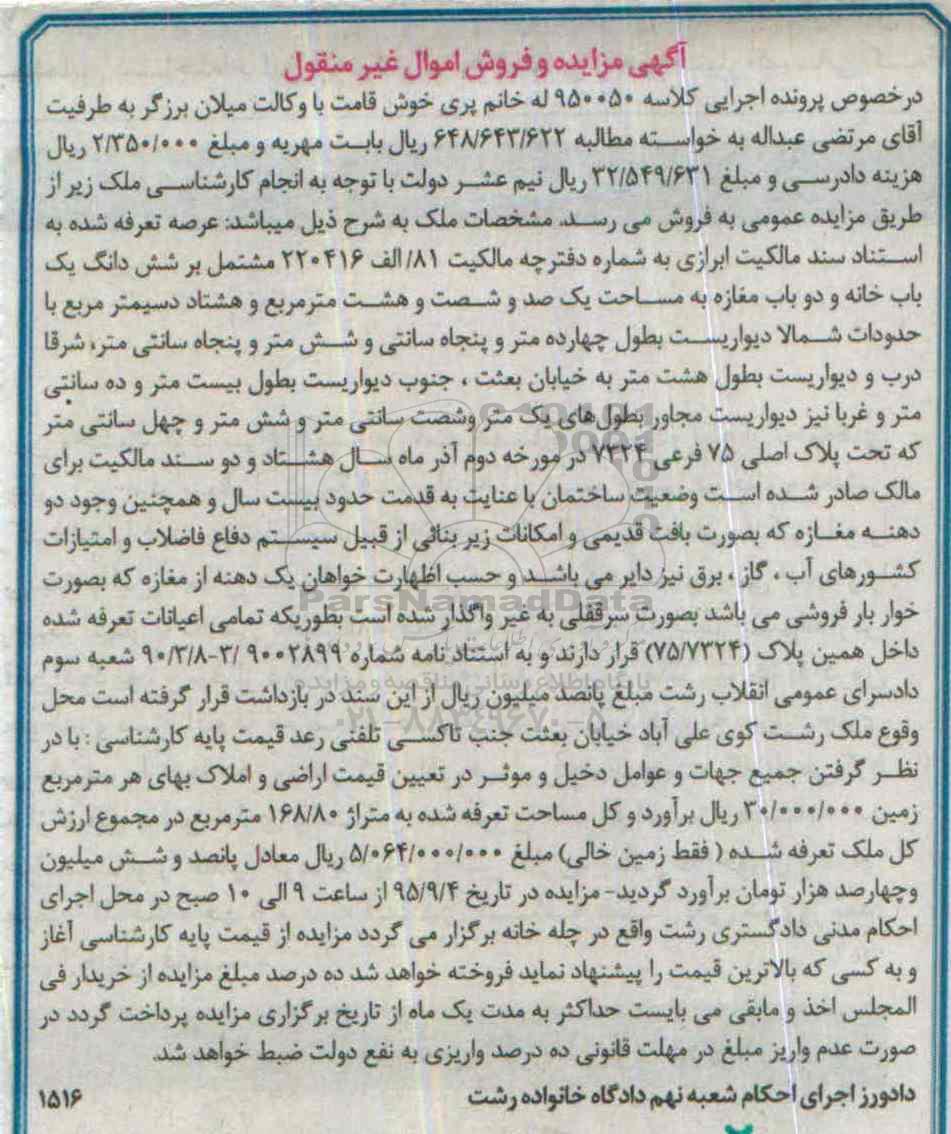 آگهی مزایده و فروش اموال غیر منقول
درخصوص پرونده اجرایی کلاسه ۹۵۰۰۵۰ له خانم پری خوش قامت با وکالت میلان برزگر به طرفیت
آقای مرتضی عبداله به خواسته مطالبه ۶۴۸/۶۴۳/۶۲۲ ریال بابت مهریه و مبلغ ۲/۳۵۰/۰۰۰ ریال
هزینه دادرسی و مبلغ ۳۲/۵۴۹/۶۳۱ ریال نیم عشر دولت با توجه به انجام کارشناسی ملک زیر از
طریق مزایده عمومی به فروش می رسد. مشخصات ملک به شرح ذیل میباشد: عرصه تعرفه شده به
استناد سند مالکیت ابرازی به شماره دفترچه مالکیت ۸۱/ الف ۲۲۰۴۱۶ مشتمل بر شش دانگ یک
باب خانه و دو باب مغازه به مساحت یک صد و شصت و هشت مترمربع و هشتاد دسیمتر مربع با
حدودات شمالا دیواریست بطول چهارده متر و پنجاه سانتی و شش متر و پنجاه سانتی متر، شرقا
درب و دیواریست بطول هشت متر به خیابان بعثت ، جنوب دیواریست بطول بیست متر و ده سانتی
متر و غربا نیز دیواریست مجاور بطول‌های یک متر وشصت سانتی متر و شش متر و چهل سانتی متر
که تحت پلاک اصلی ۷۵ فرعی ۷۳۲۴ در مورخه دوم آذر ماه سال هشتاد و دو سند مالکیت برای
مالک صادر شده است وضعیت ساختمان با عنایت به قدمت حدود بیست سال و همچنین وجود دو
دهنه مغازه که بصورت بافت قدیمی و امکانات زیر بنائی از قبیل سیستم دفاع فاضلاب و امتیازات
کشورهای آب ، گاز ، برق نیز دایر می باشد و حسب اظهارت خواهان یک دهنه از مغازه که بصورت
خوار بار فروشی می باشد بصورت سرقفلی به غیر واگذار شده است بطوریکه تمامی اعیانات تعرفه شده
داخل همین پلاک (۷۵/۷۳۲۴) قرار دارند و به استناد نامه شماره ۹۰۰۲۸۹۹ /۳-۹۰/۳/۸ شعبه سوم
دادسرای عمومی انقلاب رشت مبلغ پانصد میلیون ریال از این سند در بازداشت قرار گرفته است محل
وقوع ملک رشت کوی علی آباد خیابان بعثت جنب تاکسی تلفنی رعد قیمت پایه کارشناسی : با در
نظر گرفتن جمیع جهات و عوامل دخیل و موثر در تعیین قیمت اراضی و املاک بهای هر مترمربع
زمین ۳۰/۰۰۰/۰۰۰ ریال برآورد و کل مساحت تعرفه شده به متراژ ۱۶۸/۸۰ مترمربع در مجموع ارزش
کل ملک تعرفه شده ( فقط زمین خالی) مبلغ ۵/۰۶۴/۰۰۰/۰۰۰ ریال معادل پانصد و شش میلیون
وچهارصد هزار تومان برآورد گردید- مزایده در تاریخ ۹۵/۹/۴ از ساعت ۹ الی ۱۰ صبح در محل اجرای
احکام مدنی دادگستری رشت واقع در چله خانه برگزار می گردد مزایده از قیمت پایه کارشناسی آغاز
و به کسی که بالاترین قیمت را پیشنهاد نماید فروخته خواهد شد ده درصد مبلغ مزایده از خریدار فی
المجلس اخذ و مابقی می بایست حداکثر به مدت یک ماه از تاریخ برگزاری مزایده پرداخت گردد در
صورت عدم واریز مبلغ در مهلت قانونی ده درصد واریزی به نفع دولت ضبط خواهد شد.
دادورز اجرای احکام شعبه نهم دادگاه خانواده رشت ۱۵۱۶
ParsNamadData
پایگاه اطلاع رسانی مناقصه و مزایده
۰۲۱-۸۸۳۴۹۶۷۰-۵